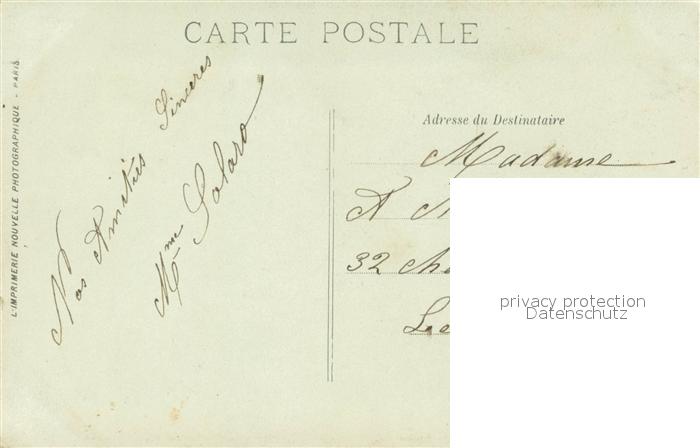 CARTE POSTALE
L'IMPRIMERIE NOUVELLE PHOTOGRAPHIQUE - PARIS
Nos Amitiés Sincères
Mme Solaro
Adresse du Destinataire
Madame
A
32
privacy protection
Datenschutz